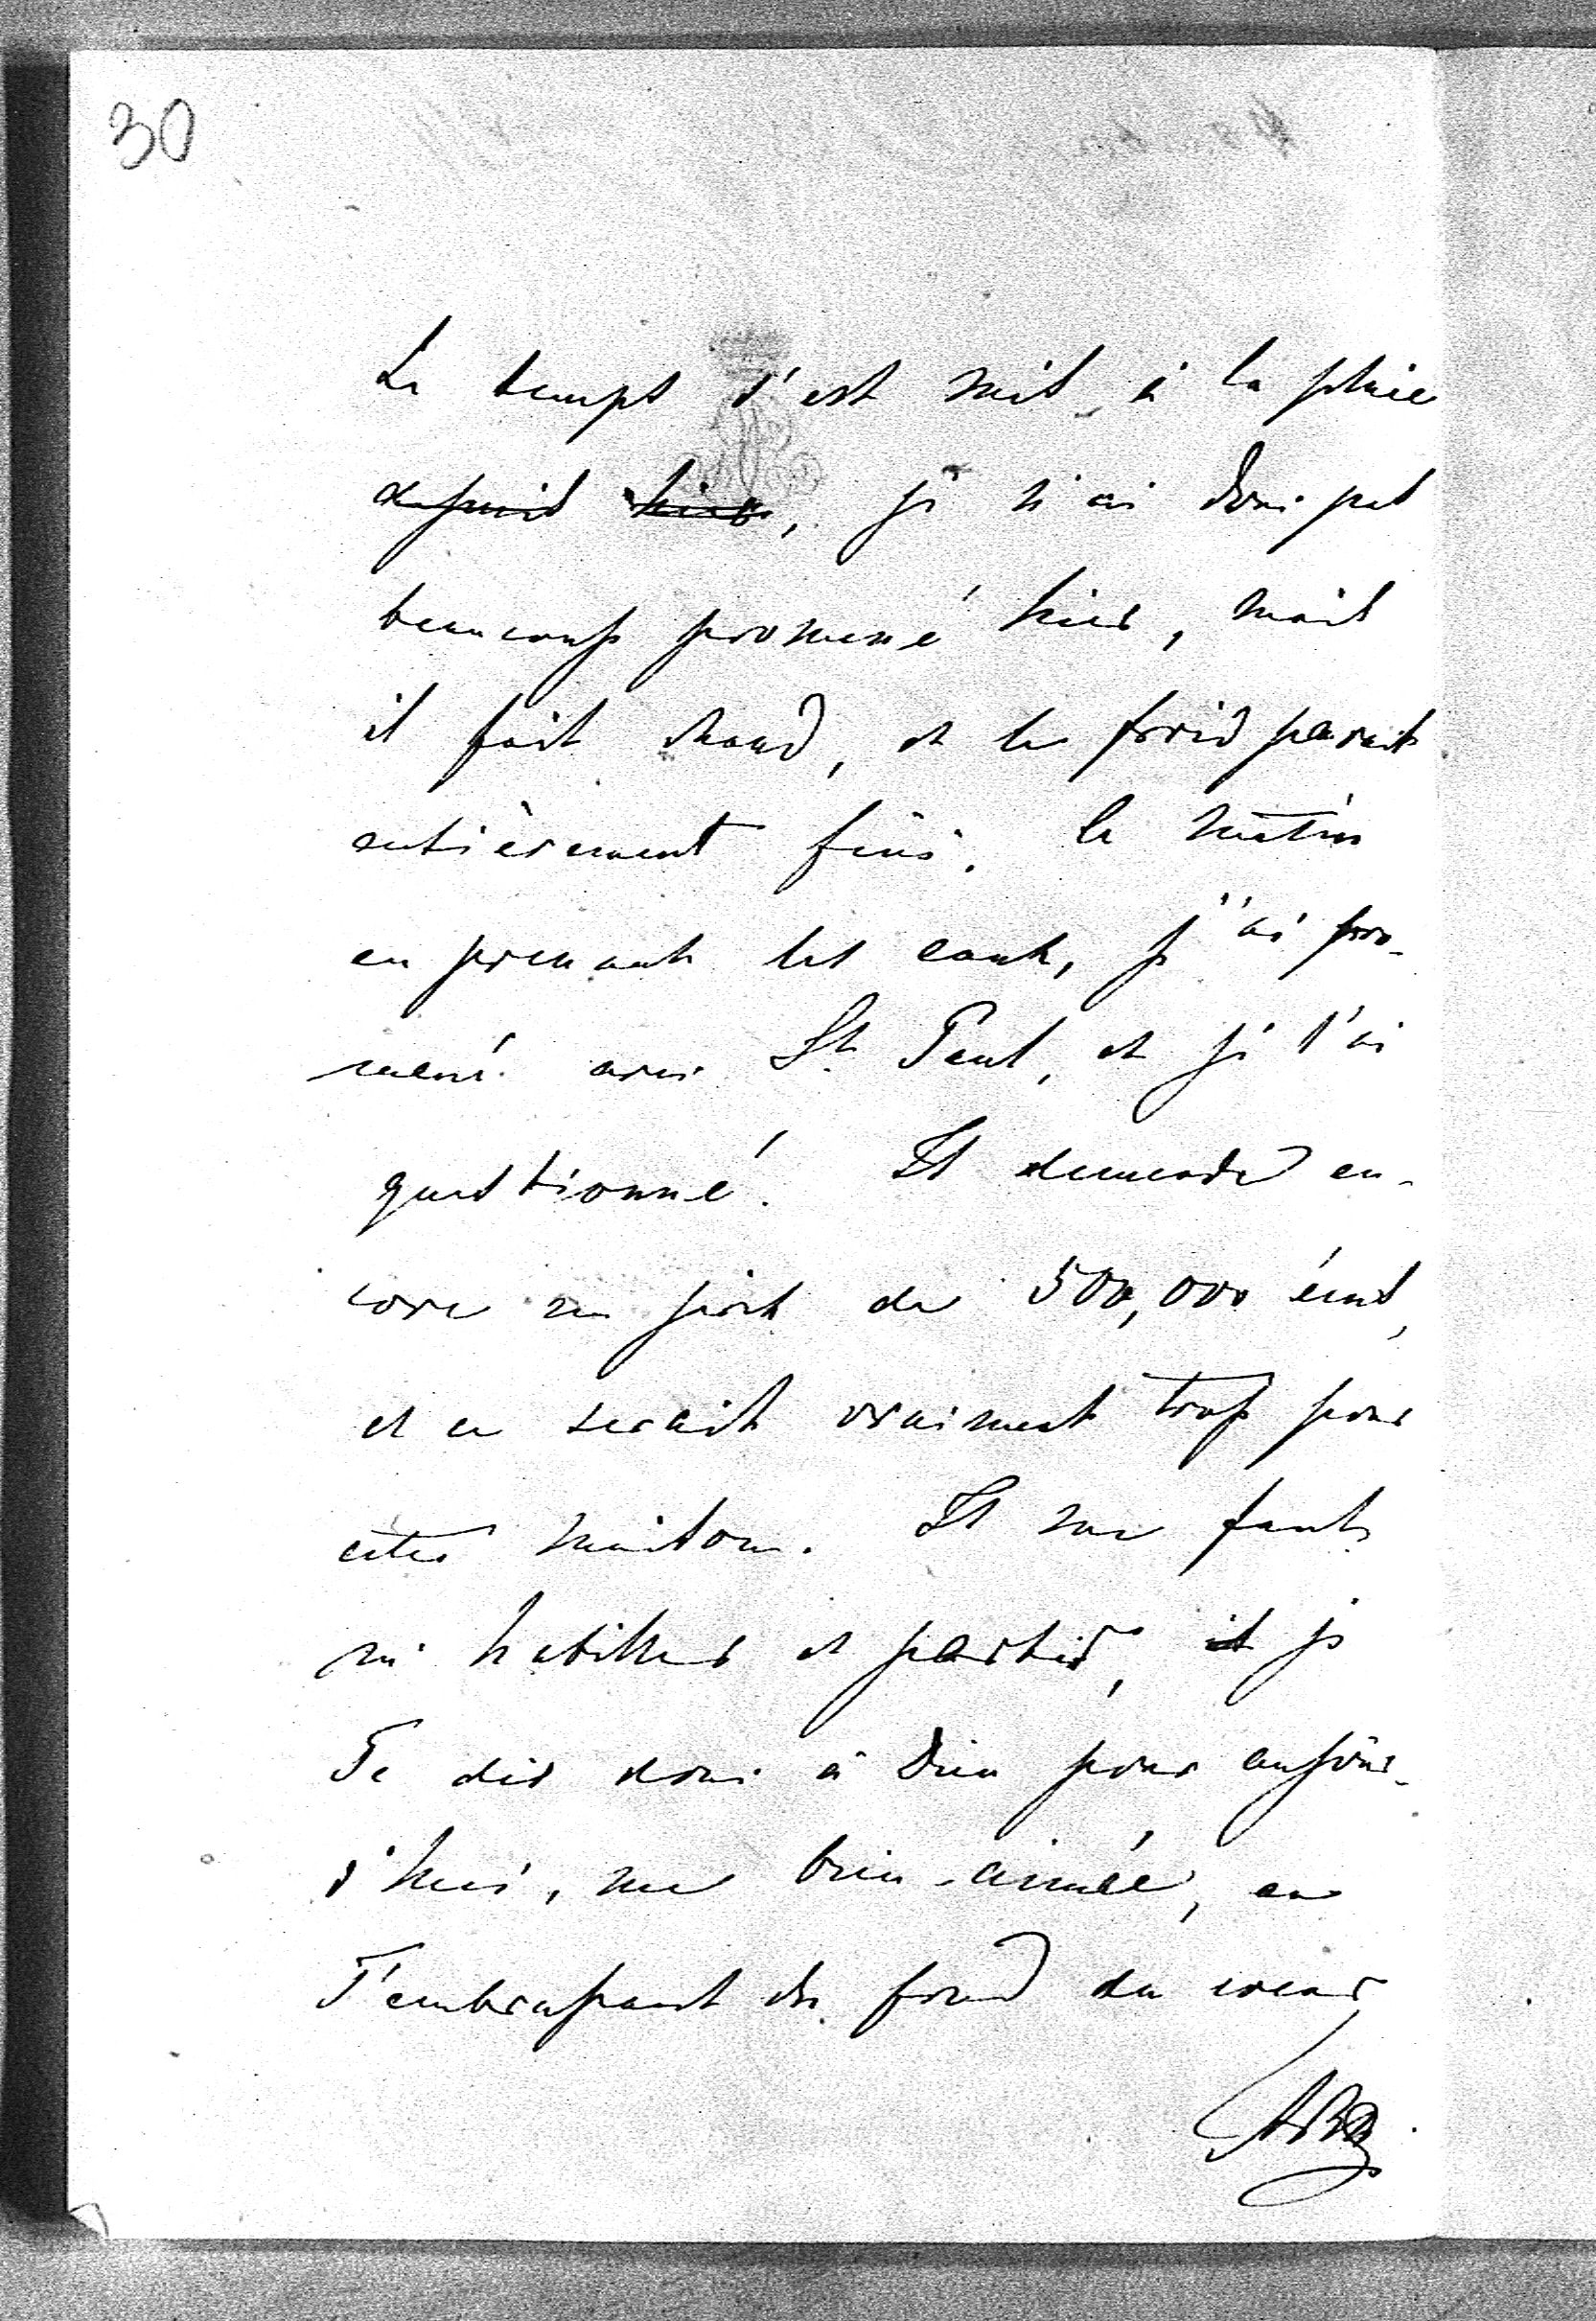 30
Le temps s'est mis à la pluie
depuis hier, je n'ai donc pas
beaucoup promené hier, mais
il fait chaud, et le froid parait
entièrement fini. Le matin
en prenant les eaux, j'ai pro-
mené avec St. Paul, et je l'ai
questionné. Il demande en-
core un prix de 500,000 écus,
et ce serait vraiment trop pour
cette maison. Il me faut
m'habiller et partir, et je
Te dis donc à Dieu pour aujour-
d'hui, ma bien-aimée, en
T'embrassant du fond du coeur